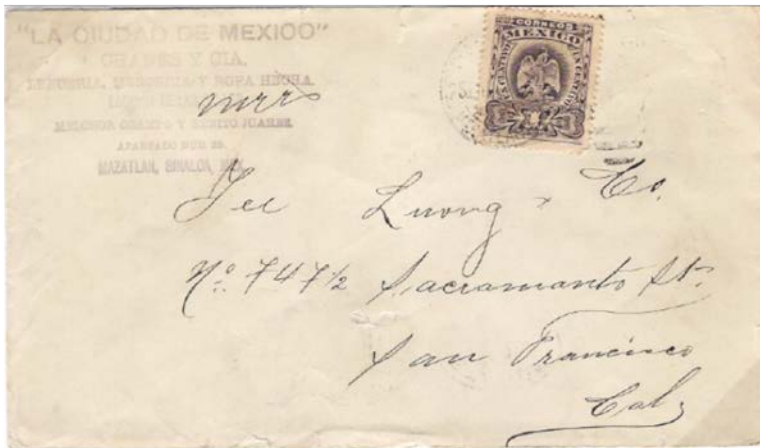 "LA CIUDAD DE MEXICO"
Y CIA.
Y ROPA HECHA.
MELCHOR OCAMPO Y BENITO JUAREZ
APARTADO NUM
MAZATLAN, SINALOA, MEX.
CORREOS
MEXICO
Luong & Co.
No. 747½ Sacramanto St.
San Francisco
Cal,